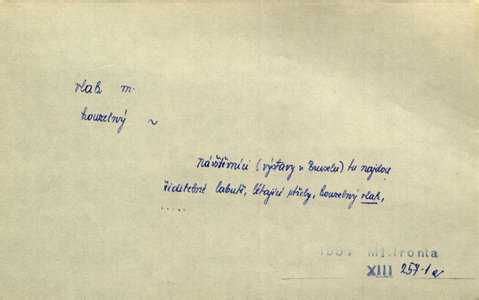 vlak m.
kouzelný ~
Návštěvníci (výstavy v Bruselu) tu najdou
řiditelné labutě, létající střely, kouzelný vlak,
.....
1957 Ml.fronta
XIII 257-1a